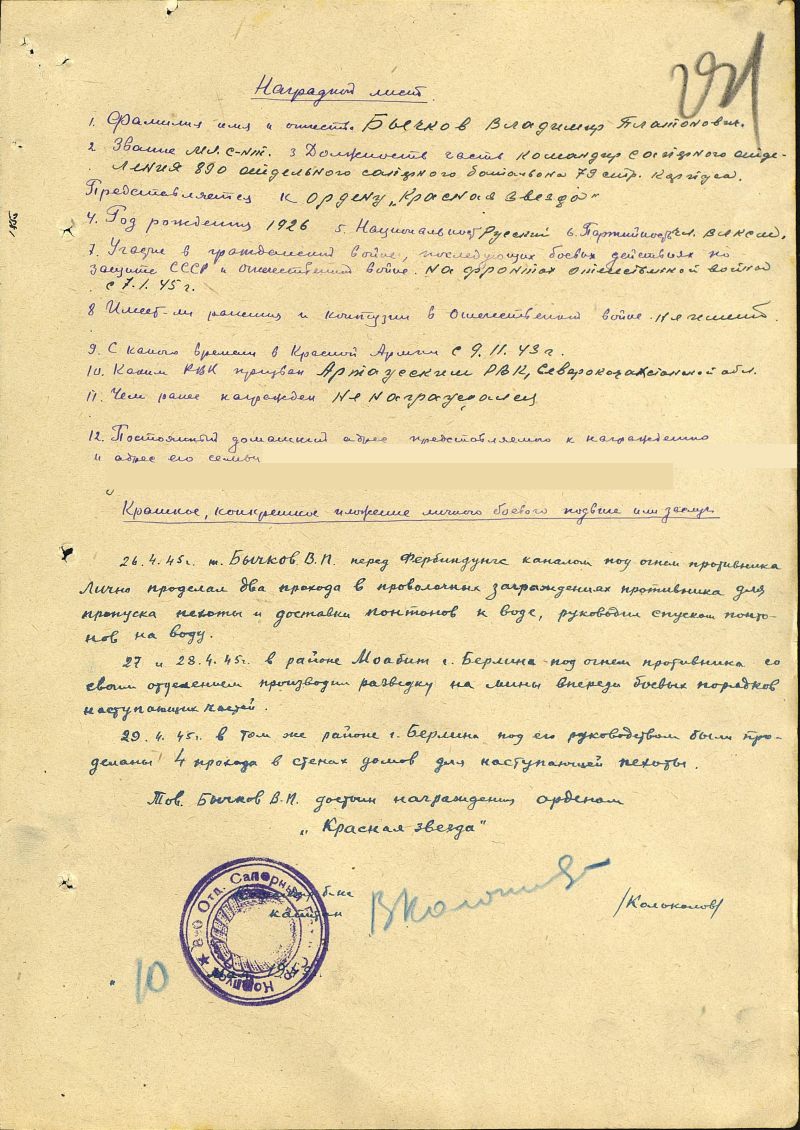 Наградной лист.
1. Фамилия имя и отчеств. Бычков Владимир Платонович.
2 Звание мл. с-нт. 3 Должность часть командир саперного отде-
ления 890 отдельного саперного батальона 79 стр. корпуса.
Представляется к ордену „Красная звезда"
4. Год рождения 1926 5. Национальность Русский 6. Партийность чл. ВЛКСМ.
7. Участие в гражданской войне, последующих боевых действиях по
защите СССР и отечественной войне. на фронтах отечественной войны
с 7.1.45 г.
8 Имеет-ли ранения и контузии в отечественной войне. не имеет.
9. С какого времени в Красной Армии с 9.11.43 г.
10. Каким РВК призван РВК, Северо казахстанской обл.
11. Чем ранее награжден не награждался
12. Постоянный домашний адрес представляемого к награждению
и адрес его семьи
Краткое, конкретное изложение личного боевого подвига или заслуг.
26.4.45г. т. Бычков В.П. перед Фербиндунгс каналом под огнем противника
лично проделал два прохода в проволочных заграждениях противника для
пропуска пехоты и доставки понтонов к воде, руководил спуском понто-
нов на воду.
27 и 28.4.45г. в районе Моабит г. Берлина под огнем противника со
своим отделением производил разведку на мины впереди боевых порядков
наступающих частей.
29.4.45г. в том же районе г. Берлина под его руководством были про-
деланы 4 прохода в стенах домов для наступающей пехоты.
Тов. Бычков В.П. достоин награждения орденом
„Красная звезда"
890 Отд. Саперный
Корпуса
капитан
/Колоколов/
10